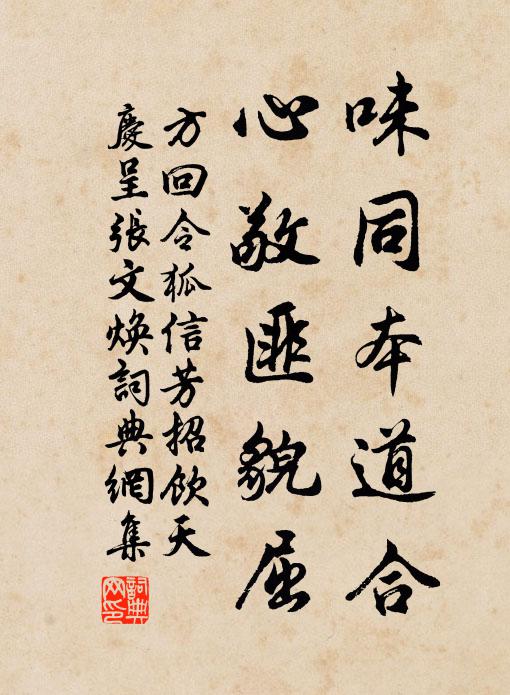 味同本道合
心敬匪貌屈
方回令狐信芳招飲天
慶呈張文煥詞典網集
詞典網印